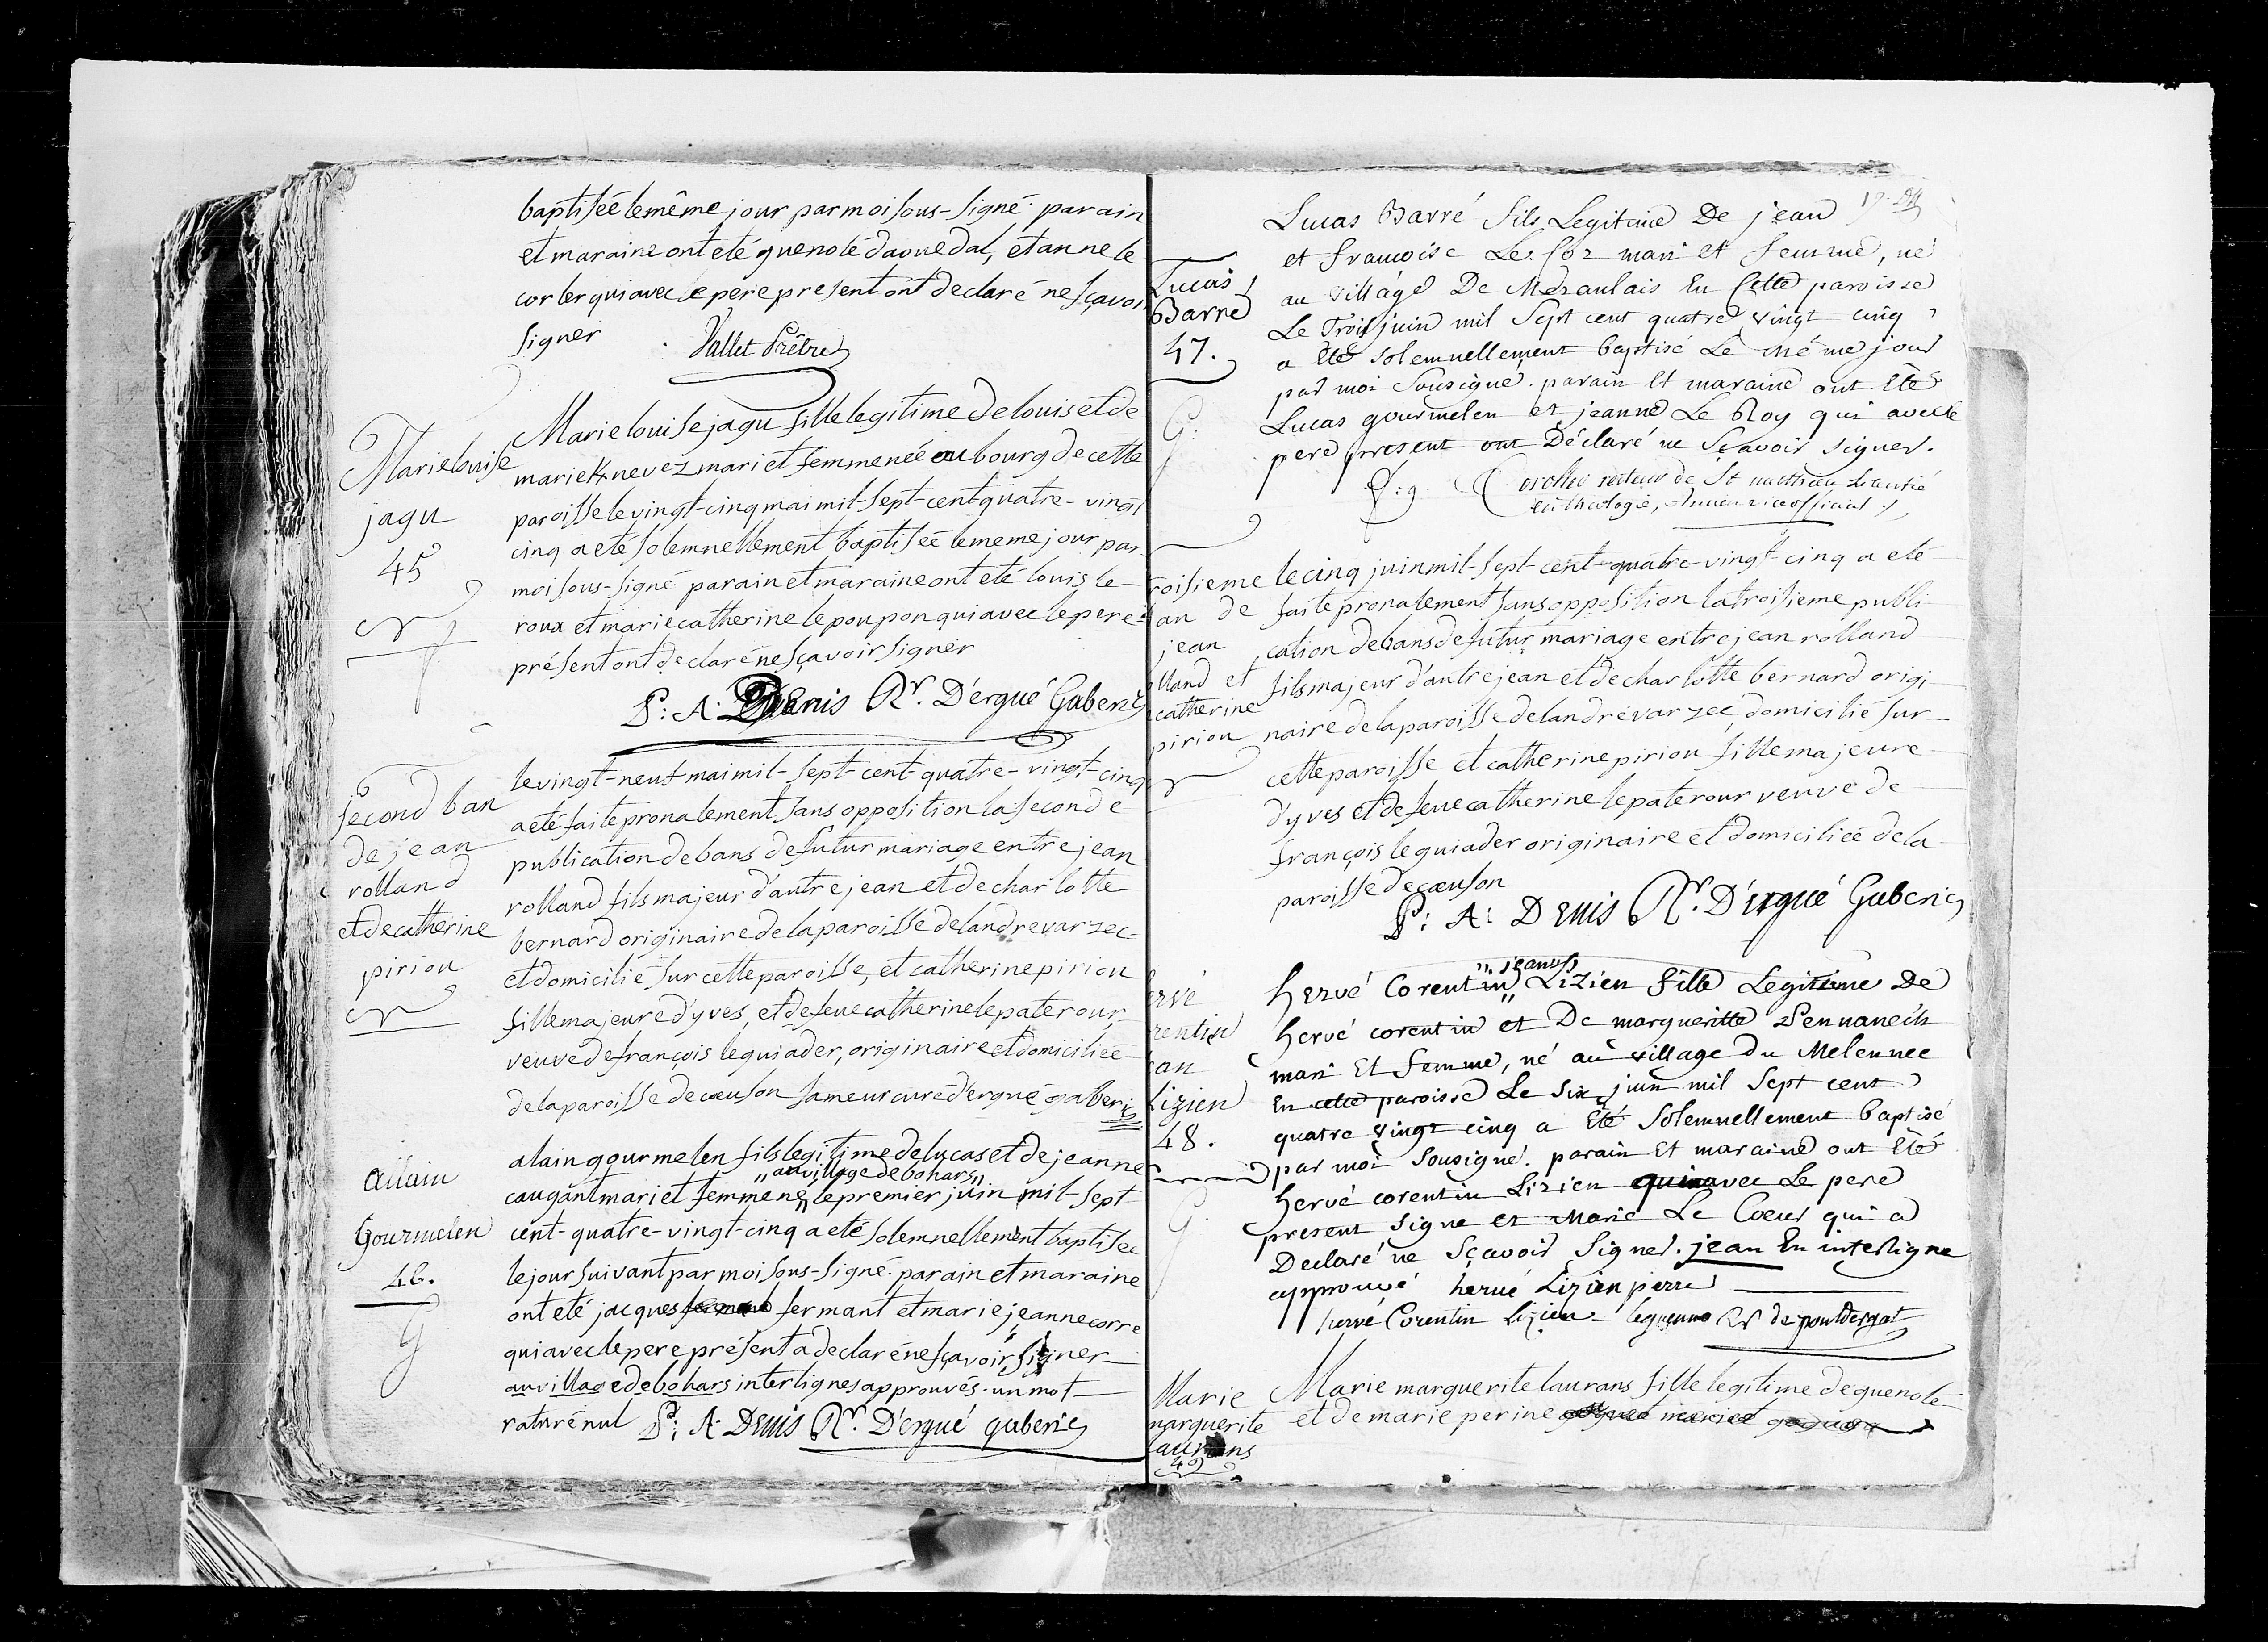 baptisée le même jour par moi sous-signé. parain
et maraine ont eté guenolé daouedal, et anne le
corler qui avec le pere present ont declaré ne sçavoir
signer
Vallet Prêtre
Marie louise
jagu
45
Marie louise jagu fille legitime de louis et de
marie Knevez mari et femme née au bourg de cette
paroisse le vingt-cinq mai mil-sept-cent quatre-vingt
cinq a eté solemnellement baptisée le meme jour par
moi sous-signé parain et maraine ont eté louis le
roux et marie catherine le poupon qui avec le pere
présent ont declaré ne sçavoir signer
P: A. Denis Rr. D'ergué Gaberic
second ban
de jean
rolland
et de catherine
piriou
le vingt-neuf mai mil-sept-cent quatre-vingt-cinq
a eté faite pronalement sans opposition la seconde
publication de bans de futur mariage entre jean
rolland fils majeur d'autre jean et de charlotte
bernard originaire de la paroisse de landrevarzec
et domicilié sur cette paroisse, et catherine pirion
fille majeure d'yves, et de feue catherine le paterour
veuve de françois le guiader, originaire et domiciliée
de la paroisse de cœuson curé d'ergué gaberic
allain
Gourmelen
46.
alain gourmelen fils legitime de lucas et de jeanne
"au village de bohars"
caugant mari et femme né le premier juin mil-sept
cent-quatre-vingt-cinq a eté solemnellement baptisé
le jour suivant par moi sous-signé. parain et maraine
ont eté jacques fermant et marie jeanne corre
qui avec le pere présent a declaré ne sçavoir signer
au village de bohars interlignes approuvés. un mot
raturé nul P: A. Denis Rr. D'ergué gaberic
Lucas
Barré
47.
Lucas Barré fils Legitime De jean
et francoise Le Cor mari et femme, né
au village De Mezanlais En Cette paroisse
Le Trois juin mil Sept cent quatre vingt cinq
a Eté solemnellement baptisé Le même jour
par moi Sousigné. parain Et maraine ont Eté
Lucas gourmelen et jeanne Le Roy qui avec le
pere present ont Déclaré ne Sçavoir signer.
recteur de St mathieu
en theologie, Ancien viceofficial
roisieme
an de
jean
lland et
catherine
pirion
le cinq juin mil-sept-cent-quatre-vingt-cinq a eté
faite pronalement sans opposition la troisieme publi
cation de bans de futur mariage entre jean rolland
fils majeur d'autre jean et de charlotte bernard origi
naire de la paroisse de landrévarzec, domicilié sur
cette paroisse et catherine pirion fille majeure
d'yves et de feue catherine le paterour veuve de
françois le guiader originaire et domiciliée de la
paroisse de cœuson
P: A: Denis Rr. D'ergué Gaberic
ervé
rentin
ean
Lizien
48.
"jean"
hervé Corentin Lizien fille Legitime De
hervé corentin et De margueritte Pennanech
mari Et femme, né au village du Melennec
En cette paroisse Le Six juin mil Sept cent
quatre vingt cinq a Eté Solemnellement baptisé
par moi Sousigné. parain Et maraine ont Eté
hervé corentin Lizien qui avec Le pere
present signe et Marie Le Coeur qui a
Declaré ne Sçavoir Signer. jean En interligne
approuvé hervé Lizien pere
hervé Corentin Lizien leguenno Rr de pouldergat
Marie
marguerite
laurans
49
Marie marguerite laurans fille legitime de guenolé
et de marie perine